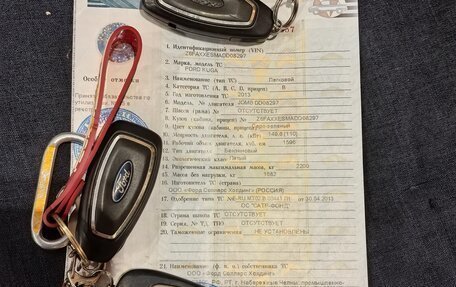 1. Идентификационный номер (VIN) Z6FAXXESMADD08297
2. Марка, модель ТС FORD KUGA
3. Наименование (тип ТС) Легковой
4. Категория ТС (A, B, C, D, прицеп) B
5. Год изготовления ТС 2013
6. Модель, № двигателя JQMB DD08297
7. Шасси (рама) № ОТСУТСТВУЕТ
8. Кузов (кабина, прицеп) № Z6FAXXESMADD08297
9. Цвет кузова (кабины, прицепа)
10. Мощность двигателя, л. с. (кВт)
11. Рабочий объем двигателя, куб. см 1596
12. Тип двигателя Бензиновый
13. Экологический класс Пятый
14. Разрешенная максимальная масса, кг 2200
15. Масса без нагрузки, кг 1682
16. Изготовитель ТС (страна)
ООО «Форд Соллерс Холдинг» (РОССИЯ)
17. Одобрение типа ТС № от 30.04.2013
ОС "САТР-ФОНД"
18. Страна вывоза ТС ОТСУТСТВУЕТ
19. Серия, № ТД, ТПО ОТСУТСТВУЕТ
20. Таможенные ограничения НЕ УСТАНОВЛЕНЫ
21. Наименование (ф. и. о.) собственника ТС
ООО «Форд Соллерс Холдинг»
РФ, РТ, г. Набережные Челны, промышленно-
Ford
Ford